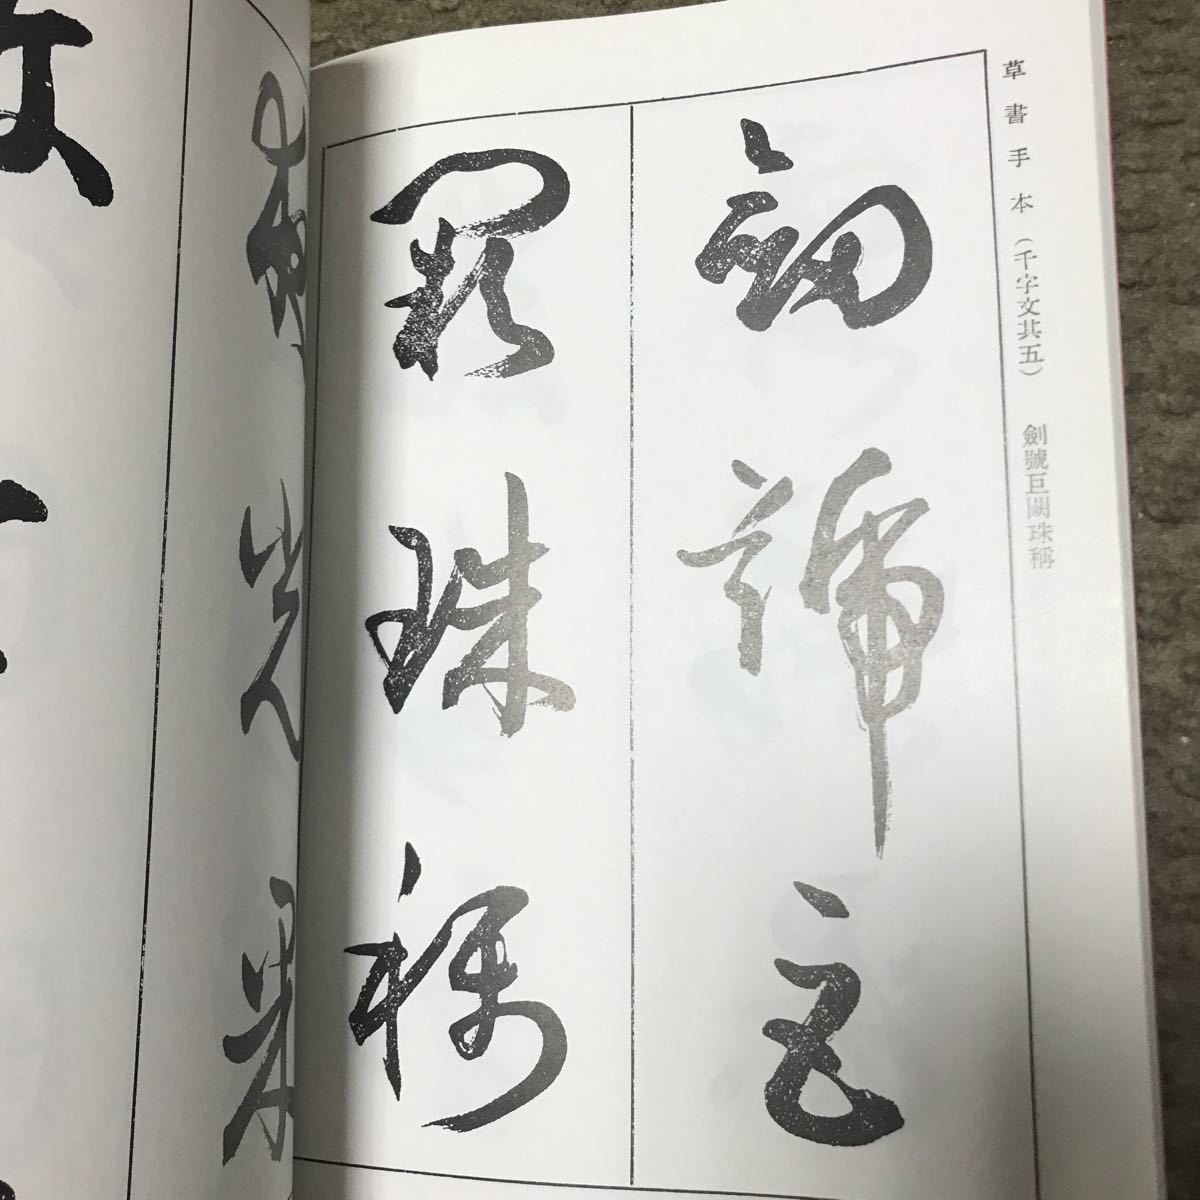 草書手本（千字文其五）　劍號巨闕珠稱
劍號巨
闕珠稱
夜光果